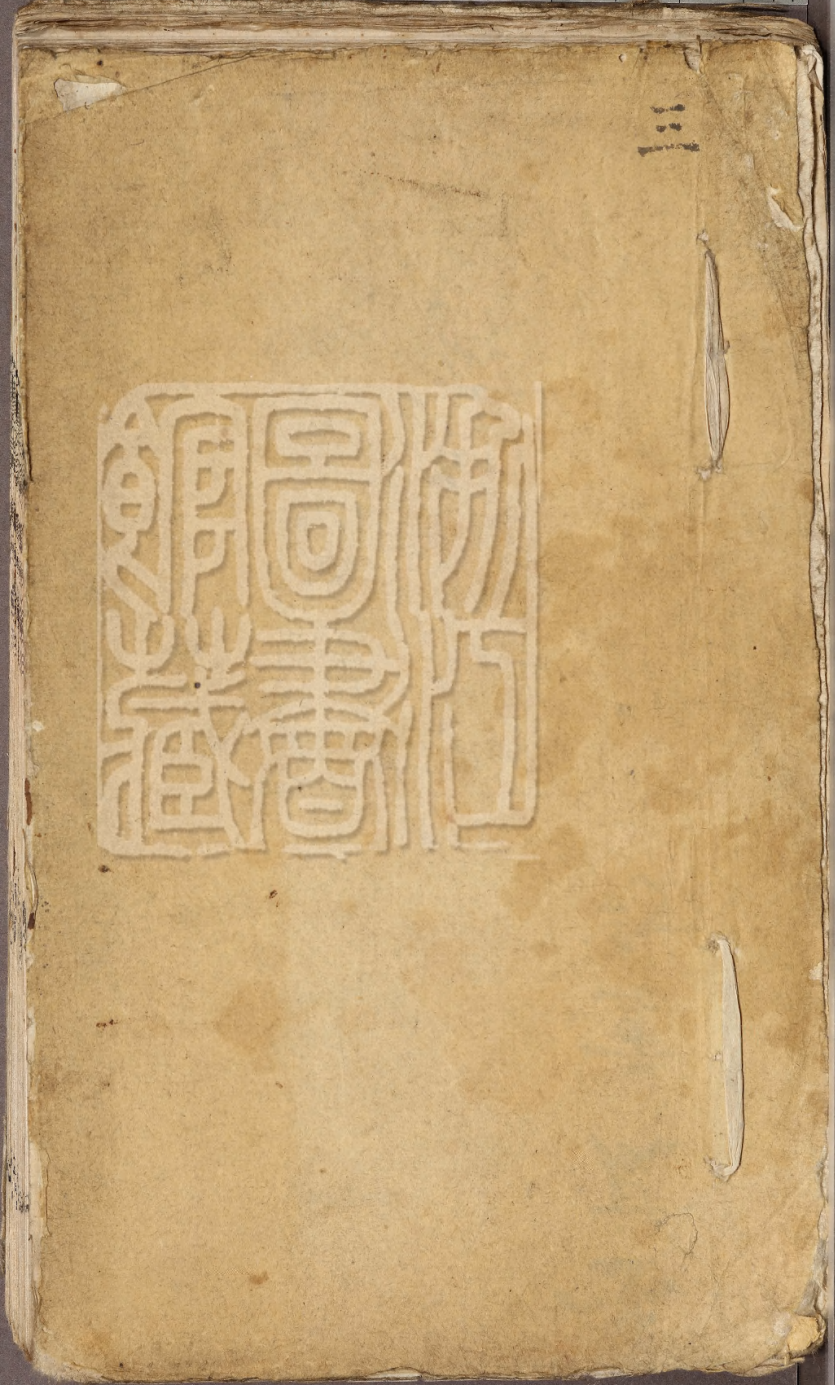 三
浙江
圖書
館藏